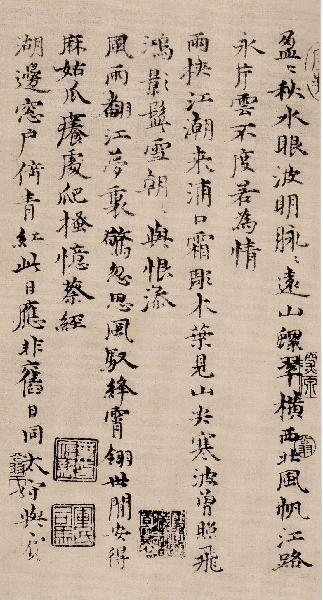 盈〻秋水眼波明脉〻遠山螺翠橫西北風帆江路
永片雲不度若為情
雨挾江潮来浦口霜彫木葉見山尖寒波曾照飛
鴻影鬢雪朝〻與恨添
風雨翻江夢裏驚忽思風馭絳霄翎世間安得
麻姑爪癢處爬搔憶蔡經
湖邊窓戶倚青紅此日應非舊日同太守與賓